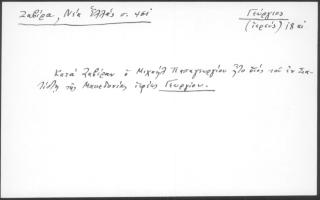 Ζαβίρα, Νέα Ἑλλάς σ. 451
Γεώργιος
(ἱερεύς) 18 αἰ
Κατὰ Ζαβίραν ὁ Μιχαήλ Παπαγεωργίου ἦτο υἱός τοῦ ἐν Σια-
τίστῃ τῆς Μακεδονίας ἱερέως Γεωργίου.